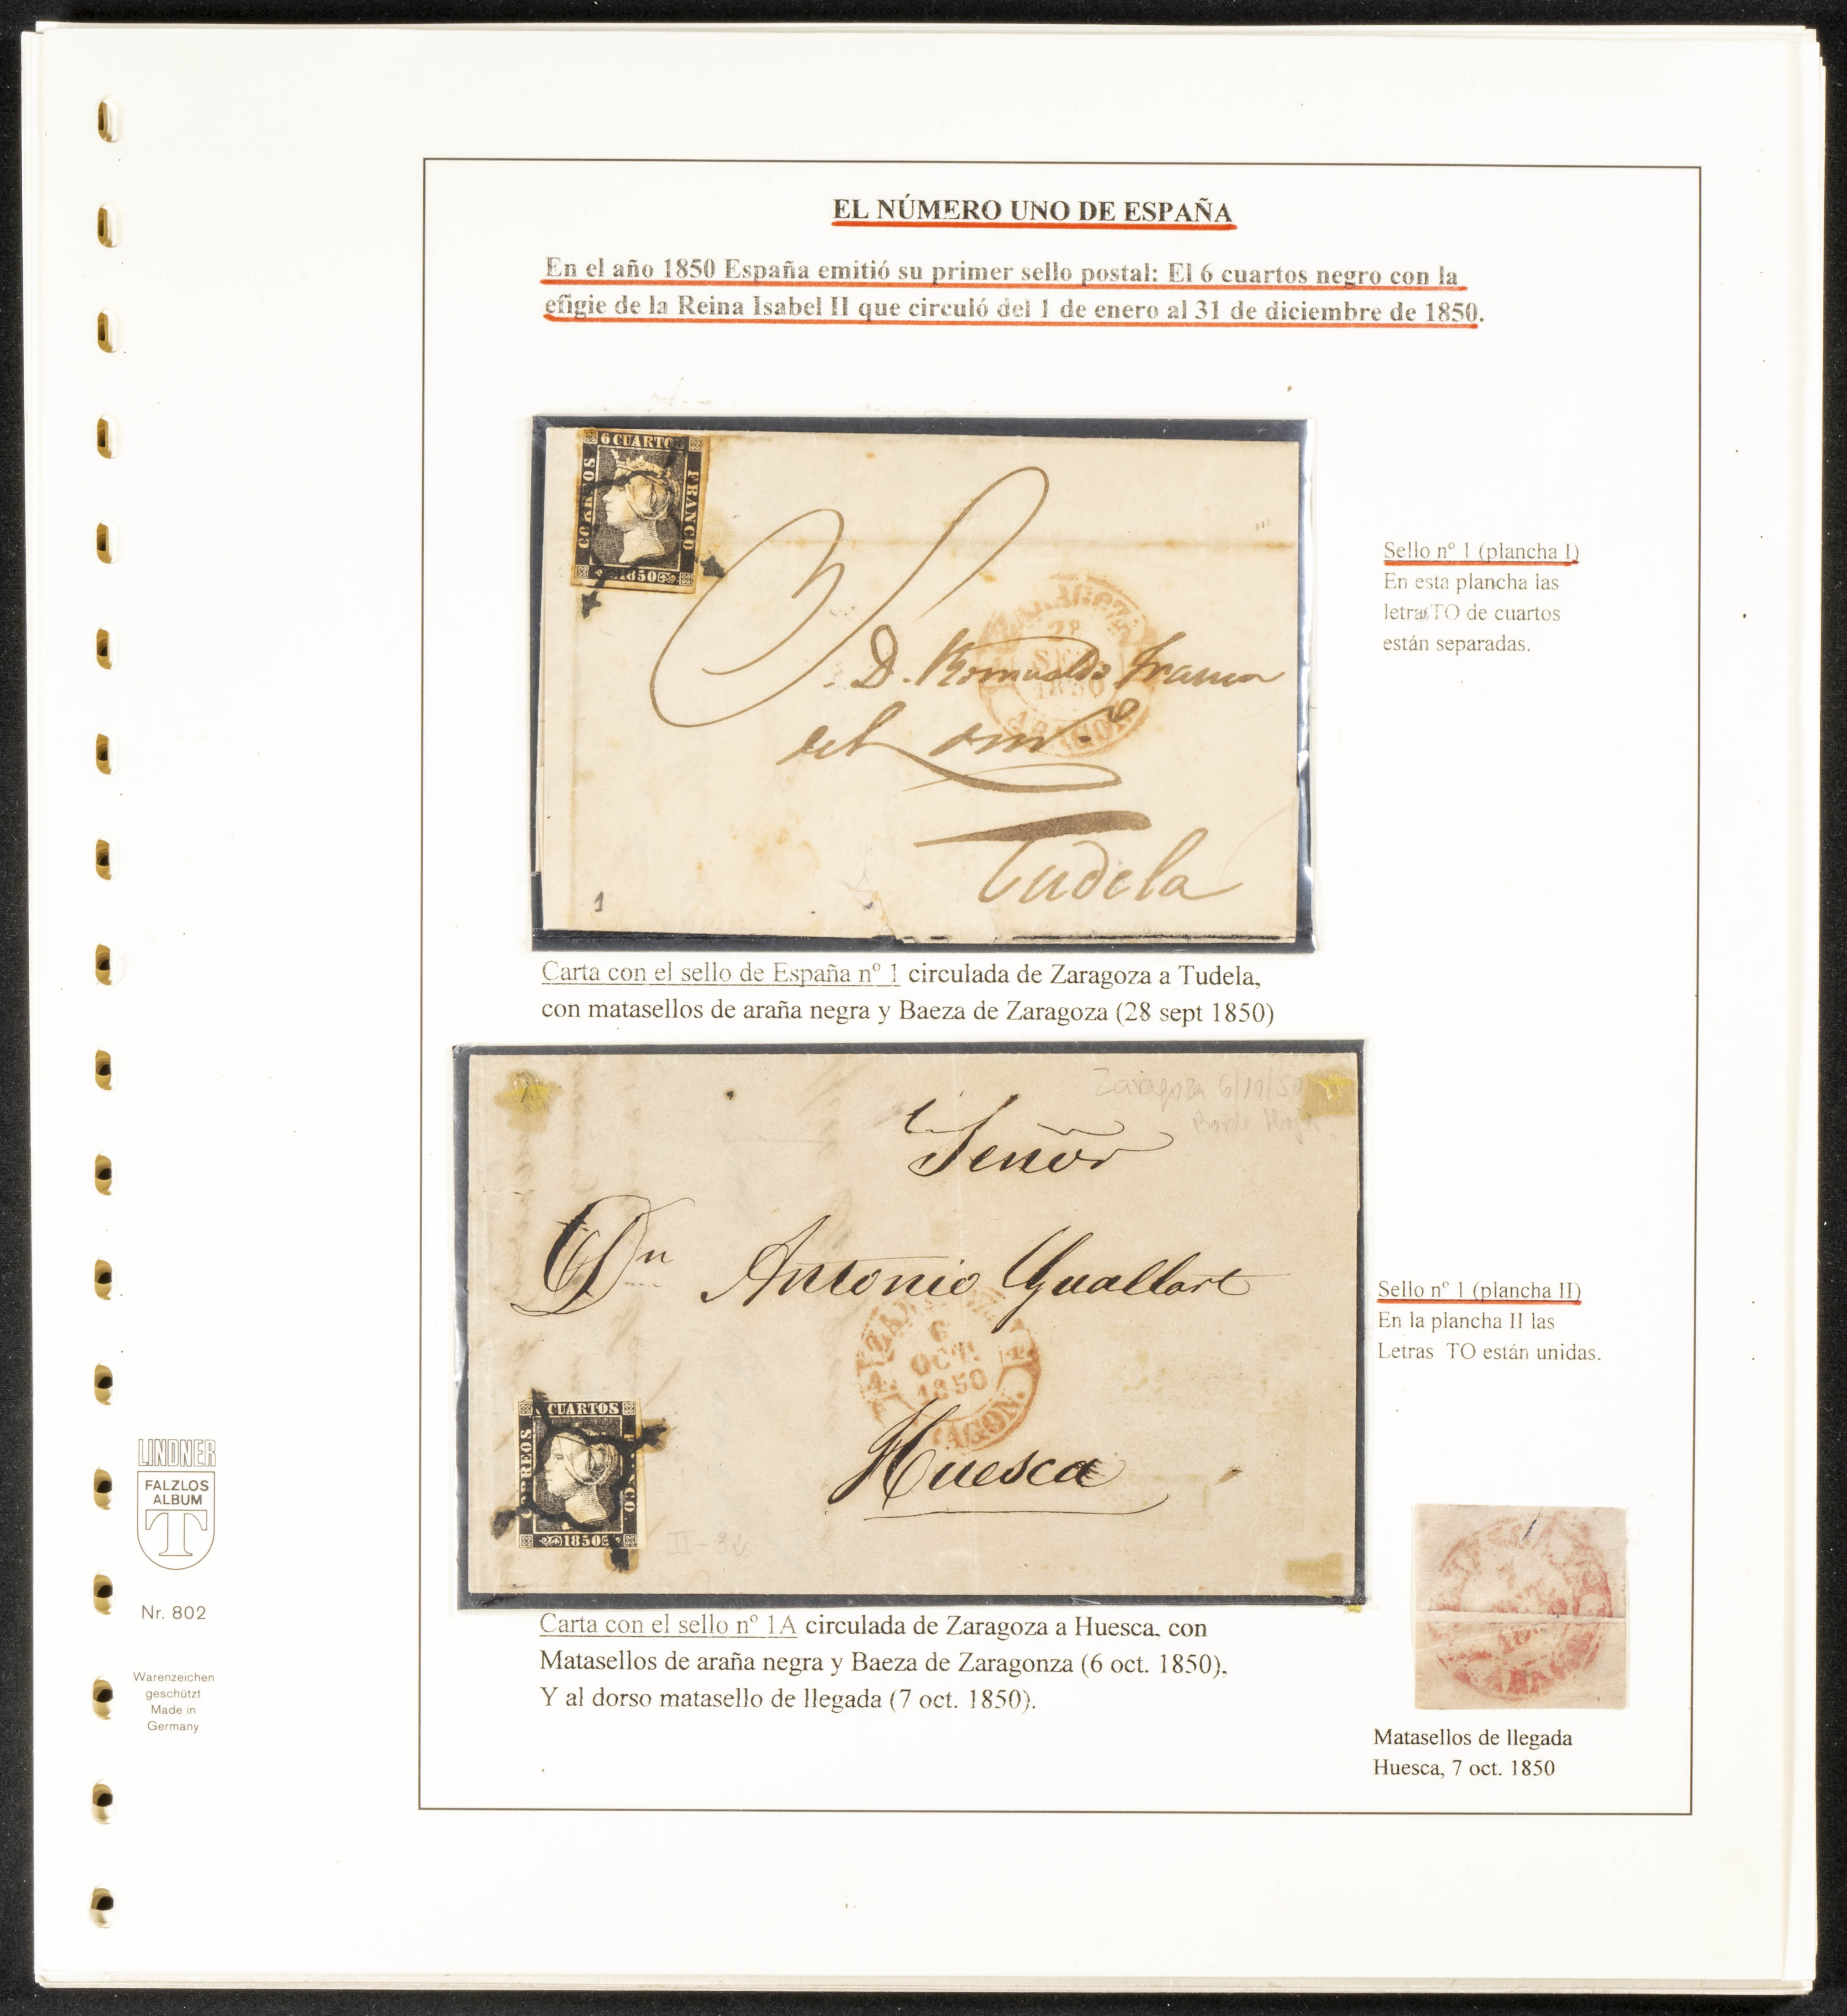 EL NÚMERO UNO DE ESPAÑA
En el año 1850 España emitió su primer sello postal: El 6 cuartos negro con la
efigie de la Reina Isabel II que circuló del 1 de enero al 31 de diciembre de 1850.
6 CUARTOS
CORREOS
FRANCO
1850
SET
1850
ARAGON
D. Romualdo Franco
del
Tudela
1
Sello nº 1 (plancha I)
En esta plancha las
letras TO de cuartos
están separadas.
Carta con el sello de España nº 1 circulada de Zaragoza a Tudela,
con matasellos de araña negra y Baeza de Zaragoza (28 sept 1850)
Zaragoza 6/10/50
Borde Hoja
Señor
Dn Antonio Guallart
6
OCT.
1850
ARAGON.
Huesca
CUARTOS
CORREOS
1850
II-32
Sello nº 1 (plancha II)
En la plancha II las
Letras TO están unidas.
Carta con el sello nº 1A circulada de Zaragoza a Huesca, con
Matasellos de araña negra y Baeza de Zaragonza (6 oct. 1850).
Y al dorso matasello de llegada (7 oct. 1850).
Matasellos de llegada
Huesca, 7 oct. 1850
LINDNER
FALZLOS
ALBUM
T
Nr. 802
Warenzeichen
geschützt
Made in
Germany